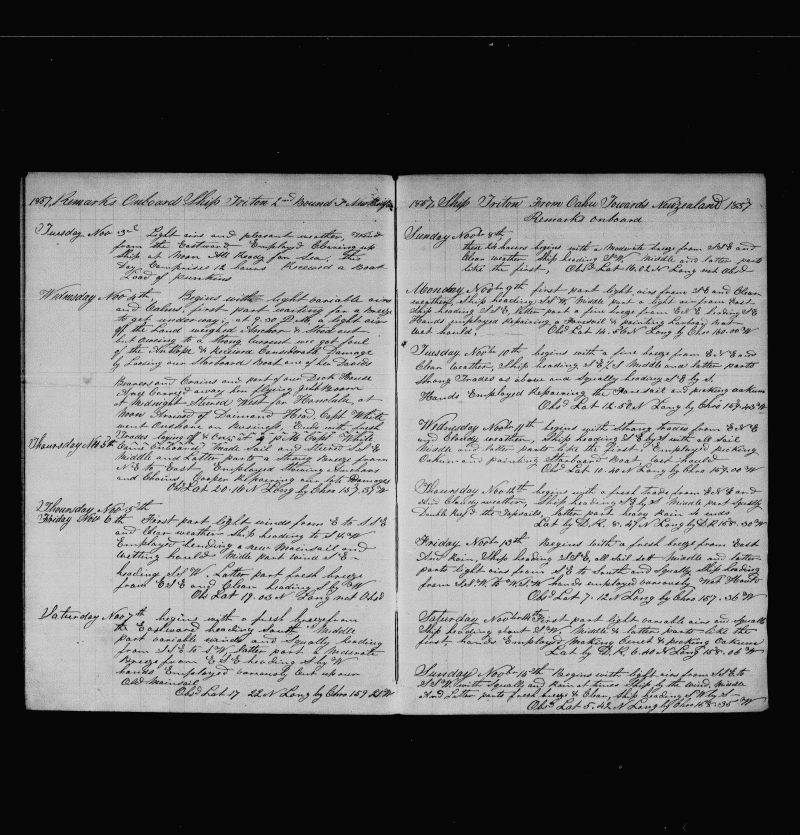 1857, Remarks Onboard Ship Triton 2nd Bound to New
Tuesday Nov 3rd Light airs and pleasent weather, Wind
from the Eastward Employd Clearing up
Ship at Noon All Ready for Sea. This
Day Comprises 12 hours Received a Boat
Load of Punkins
Wednesday Nov 4th, Begins with light variable airs
and Calms, first part waiting for a breeze
to get underway, at 9.30 with a light air
off the Land weighed Anchor & Stood out
but owing to a Strong Current we got foul
of the Antilope & Received Considerable Damage
by Loosing our Starboard Boat one of Lew Davies
Boards and Crains and part of our Deck House
Also Carried away her flying gib Boom
at Midnight Steered West for Honolulu, at
Noon Abread of Daimond Head, Capt White
went Onshore on Business, Ends with fresh
Trades laying of & on, at 4 P.M. Capt White
Thoursday Nov 5th Came Onboard, Made Sail and Steered S & E
Middle and Latter parts a Strong Breeze from
N E to East, Employed Stowing Anchors
and Chains, Cooper Repairing our late Damages
Obsd Lat 20.10 N Long by Chro 157.57 W
Thoursday Nov 5th
Friday Nov 6th First part light winds from E to S S E
and Clear weather Ship heading to S & W
Employed bending a new Mainsail and
Wetting hould. Midle part wind S E
heading S S W. Latter part fresh breeze
from E S E and Clean heading S by W
Obsd Lat 19.03 N Long not Obsd
Saturday Nov 7th begins with a fresh breeze from
the Eastward heading South, Middle
part variable winds and Squally heading
from S S E to S W, latter part a Moderate
Breeze from E S E heading S by W
hands Employed variously Cut up our
Old Mainsail
Obsd Lat 17 22 N Long by Chro 159.28 W
1857, Ship Triton From Oahu Towards Newzealand 1857
Remarks onboard
Sunday Novbr 8th
these 24 hours begins with a Moderate breeze from S S E and
Clean weather Ship heading S W, Middle and latter parts
like the first, Obsd Lat 16.02 N Long not Obsd
Monday Novbr 9th first part light airs from S E and Clear
weather, Ship heading S S W, Middle part a light air from East
Ship heading S S E, latter part a fine breeze from E N E heading S E
Hands employed Repairing a Foresail & painting Larbord Boat
Wet hould, Obsd Lat 14.56 N Long by Chro 160.00 W
Tuesday Novbr 10th begins with a fine breeze from E N E and
Clean weather, Ship heading S E ½ S Middle and latter parts
Strong Trades as above and Squally heading S E by S.
Hands Employed Repairing the Foresail and picking oakum
Obsd Lat 12.52 N Long by Chro 159.43 W
Wednesday Novbr 11th begins with Strong Trades from E N E
and Cloudy weather, Ship heading S E by S with all Sail
Middle and latter parts like the first, Employed picking
Oakum and painting Starboard Boat, wet hould
Obsd Lat 10.40 N Long by Chro 159.00 W
Thoursday Novbr 12th begins with a fresh trade from E N E and
and Cloudy weather, Ship heading S E by S Middle part Squally
Double Reefd the Topsails, latter part heavy Rain & ends
Lat by D.R. 8.47 N Long by D.R 158.30 W
Friday Novbr 13th Begins with a fresh breeze from East
And Rain, Ship heading S S E, all Sail set Middle and latter
parts light airs from S E to South and Squally Ship heading
from S S W, to W S W hands employed variously Wet Hould
Obsd Lat 7.12 N Long by Chro 157.36 W
Saturday Novbr 14th First part variable airs and Squally
Ship heading about S W, Middle & latter parts like the
first hands Employed Making Sennit & picking Oakum
Lat by D.R. 6.40 N Long 158.06 W
Sunday Novbr 15th Begins with light airs from S E to
S S W, with Squally and Rain at times Ship by the wind, Middle
And Latter parts fresh breeze & Clean, Ship heading S W by S
Obsd Lat 5.42 N Long by Chro 158.35 W